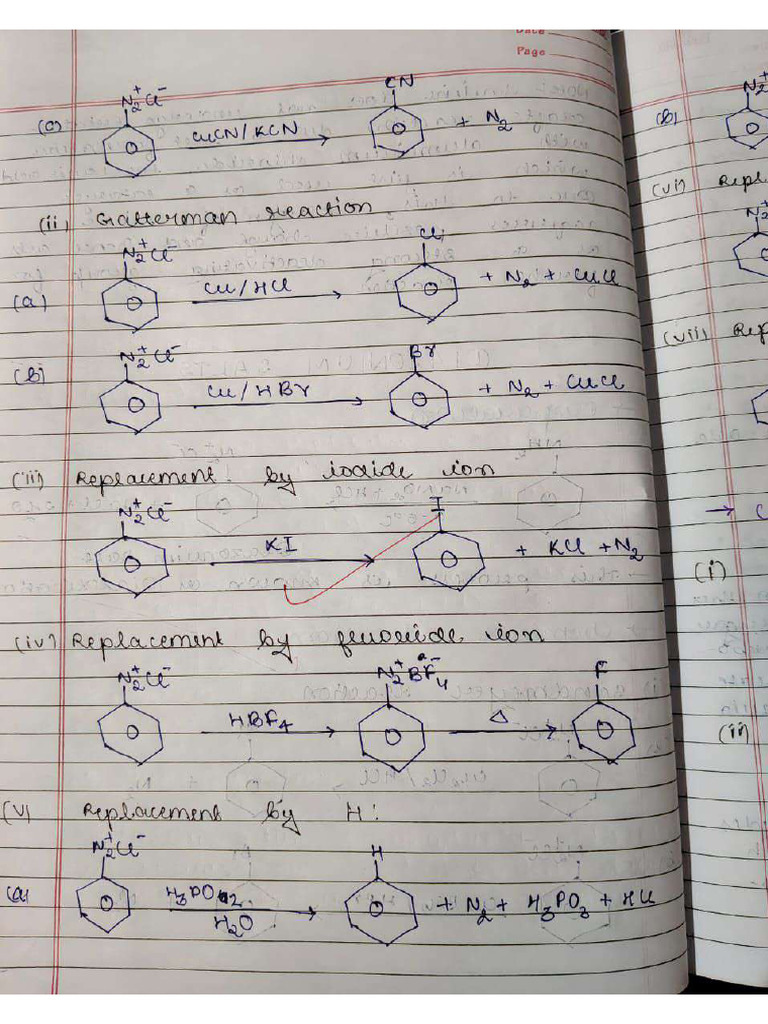 Date
Page
CN
N₂⁺Cl⁻
(c) CuCN/KCN + N₂
(ii) Gatterman reaction
Cl
N₂⁺Cl⁻
(a) Cu/HCl + N₂ + CuCl
Br
N₂⁺Cl⁻
(b) Cu/HBr + N₂ + CuCl
(iii) Replacement by iodide ion
I
N₂⁺Cl⁻
KI + KCl + N₂
(iv) Replacement by fluoride ion
N₂⁺Cl⁻ N₂⁺BF₄⁻ F
HBF₄ Δ
(v) Replacement by H:
N₂⁺Cl⁻ H
(a) H₃PO₂ + N₂ + H₃PO₃ + HCl
H₂O
N₂⁺
(b)
(vi) Repl
N₂⁺
(vii) Rep
→ C
(i)
(ii)